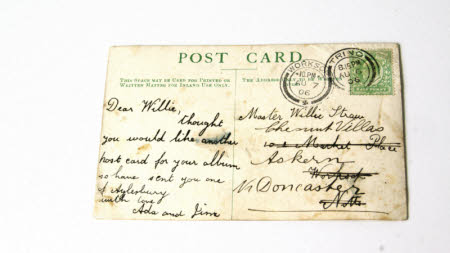 POST CARD
THIS SPACE MAY BE USED FOR PRINTED OR
WRITTEN MATTER FOR INLAND USE ONLY.
THE ADDRESS
Dear Willie,
thought
you would like another
post card for your album
so have sent you one
of Aylesbury
with love
Ada and Jim
WORKSOP
AU 7
06
TRING
8.15 PM
AU
06
Master Willie Straw
Chesnut Villas
Market Place
Askern
Worksop
Nr Doncaster
Notts